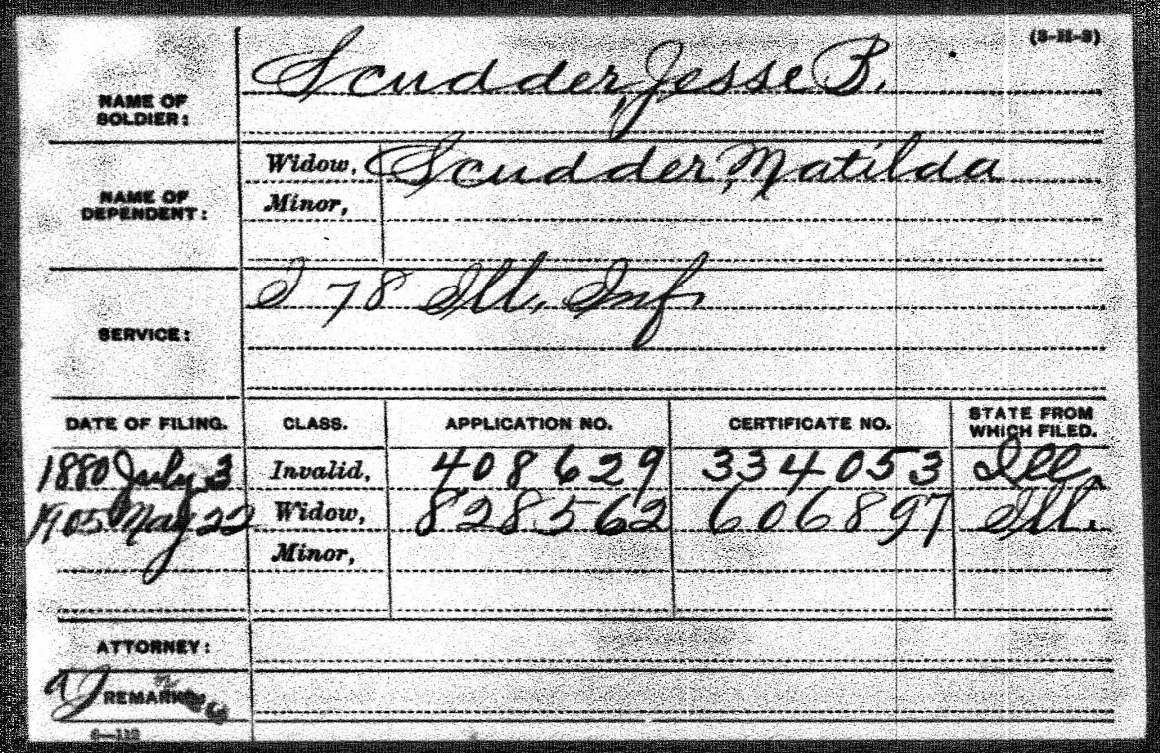 (3-11-3)
NAME OF SOLDIER: Scudder, Jesse B.
NAME OF DEPENDENT: Widow, Scudder, Matilda
Minor,
SERVICE: I 78 Ill. Inf.
DATE OF FILING. CLASS. APPLICATION NO. CERTIFICATE NO. STATE FROM WHICH FILED.
1880 July 3 Invalid, 408629 334053 Ill.
1905 May 22 Widow, 828562 606897 Ill.
Minor,
ATTORNEY:
REMARKS